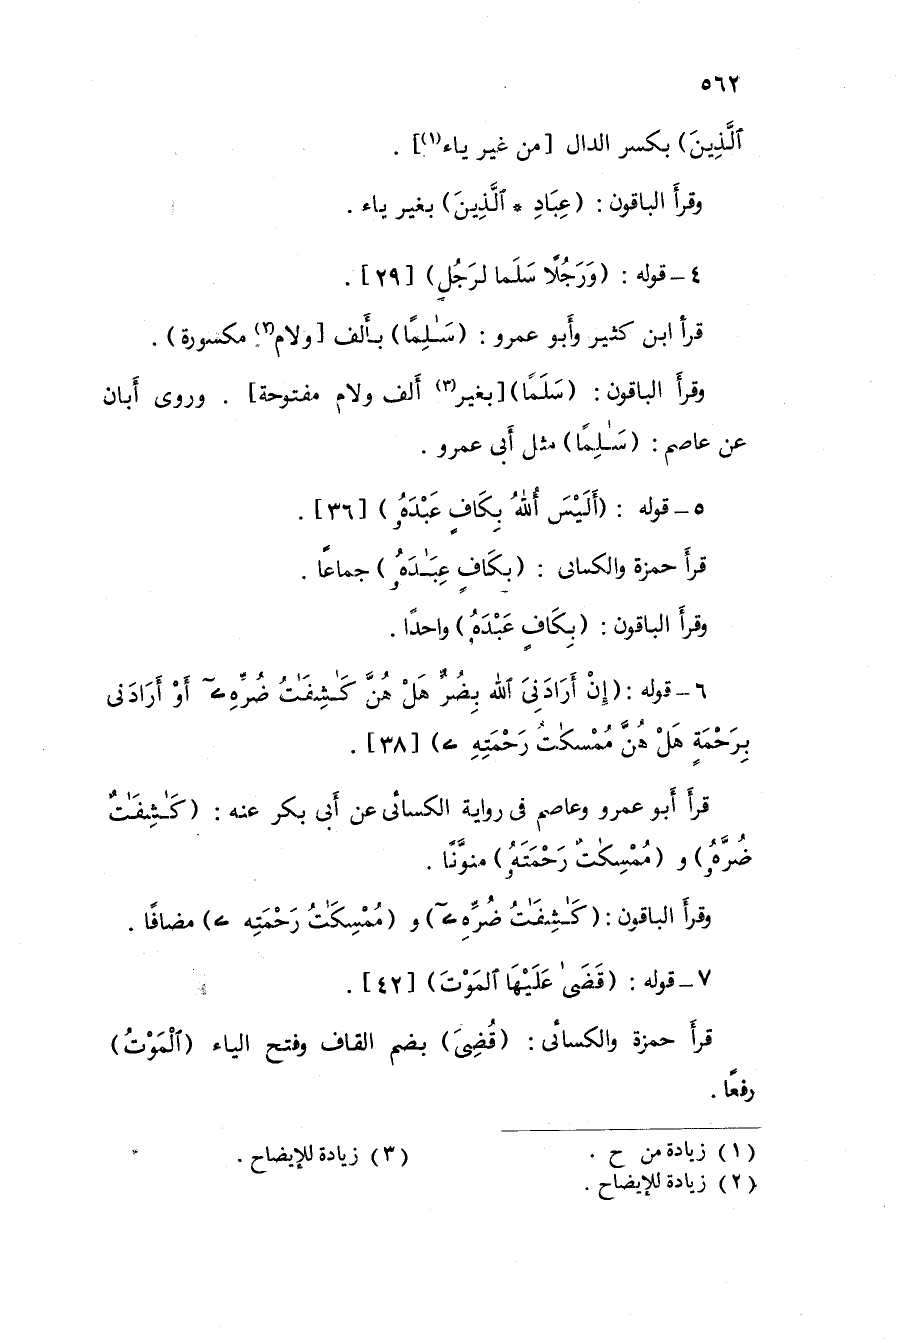 ٥٦٢
ٱلَّذِينَ) بكسر الدال [من غير ياء(١)] .
وقرأ الباقون : (عِبَادِ * ٱلَّذِينَ) بغير ياء .
٤ ـ قوله : (وَرَجُلًا سَلَما لرَجُلٍ) [٢٩] .
قرأ ابن كثير وأبو عمرو : (سَـٰلِمًا) بـألف [ولام(٢) مكسورة) .
وقرأ الباقون : (سَلَمًا)[بغير(٣) ألف ولام مفتوحة] . وروى أبان
عن عاصم : (سَـٰلِمًا) مثل أبى عمرو .
٥ ـ قوله : (أَلَيْسَ ٱللهُ بِكَافٍ عَبْدَهُۥ) [٣٦] .
قرأ حمزة والكسائى : (بِكَافٍ عِبَـٰدَهُۥ) جماعاً .
وقرأ الباقون : (بِكَافٍ عَبْدَهُۥ) واحدًا .
٦ ـ قوله : (إِنْ أَرَادَنِىَ ٱلله بِضُرٍّ هَلْ هُنَّ كَـٰشِفَـٰتُ ضُرِّهِۦٓ أَوْ أَرَادَنى
بِرَحْمَةٍ هَلْ هُنَّ مُمْسِكَـٰتُ رَحْمَتِهِ ۦ) [٣٨] .
قرأ أبو عمرو وعاصم فى رواية الكسائى عن أبى بكر عنه : (كَـٰشِفَـٰتٌ
ضُرَّهُۥ) و (مُمْسِكَـٰتٌ رَحْمَتَهُۥ) منوَّنًا .
وقرأ الباقون : (كَـٰشِفَـٰتُ ضُرِّهِۦٓ) و (مُمْسِكَـٰتُ رَحْمَتِه ۦ) مضافًا .
٧ ـ قوله : (قَضَىٰ عَلَيْهَا ٱلمَوْتَ) [٤٢] .
قرأ حمزة والكسائى : (قُضِىَ) بضم القاف وفتح الياء (ٱلْمَوْتُ)
رفعًا .
(١) زيادة من ح .
(٢) زيادة للإيضاح .
(٣) زيادة للإيضاح .